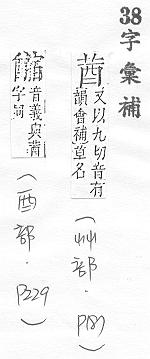 38字彙補
莤
又以九切音有
韻會補草名
(艸部．P187)
音義與莤
字同
(酉部．P229)